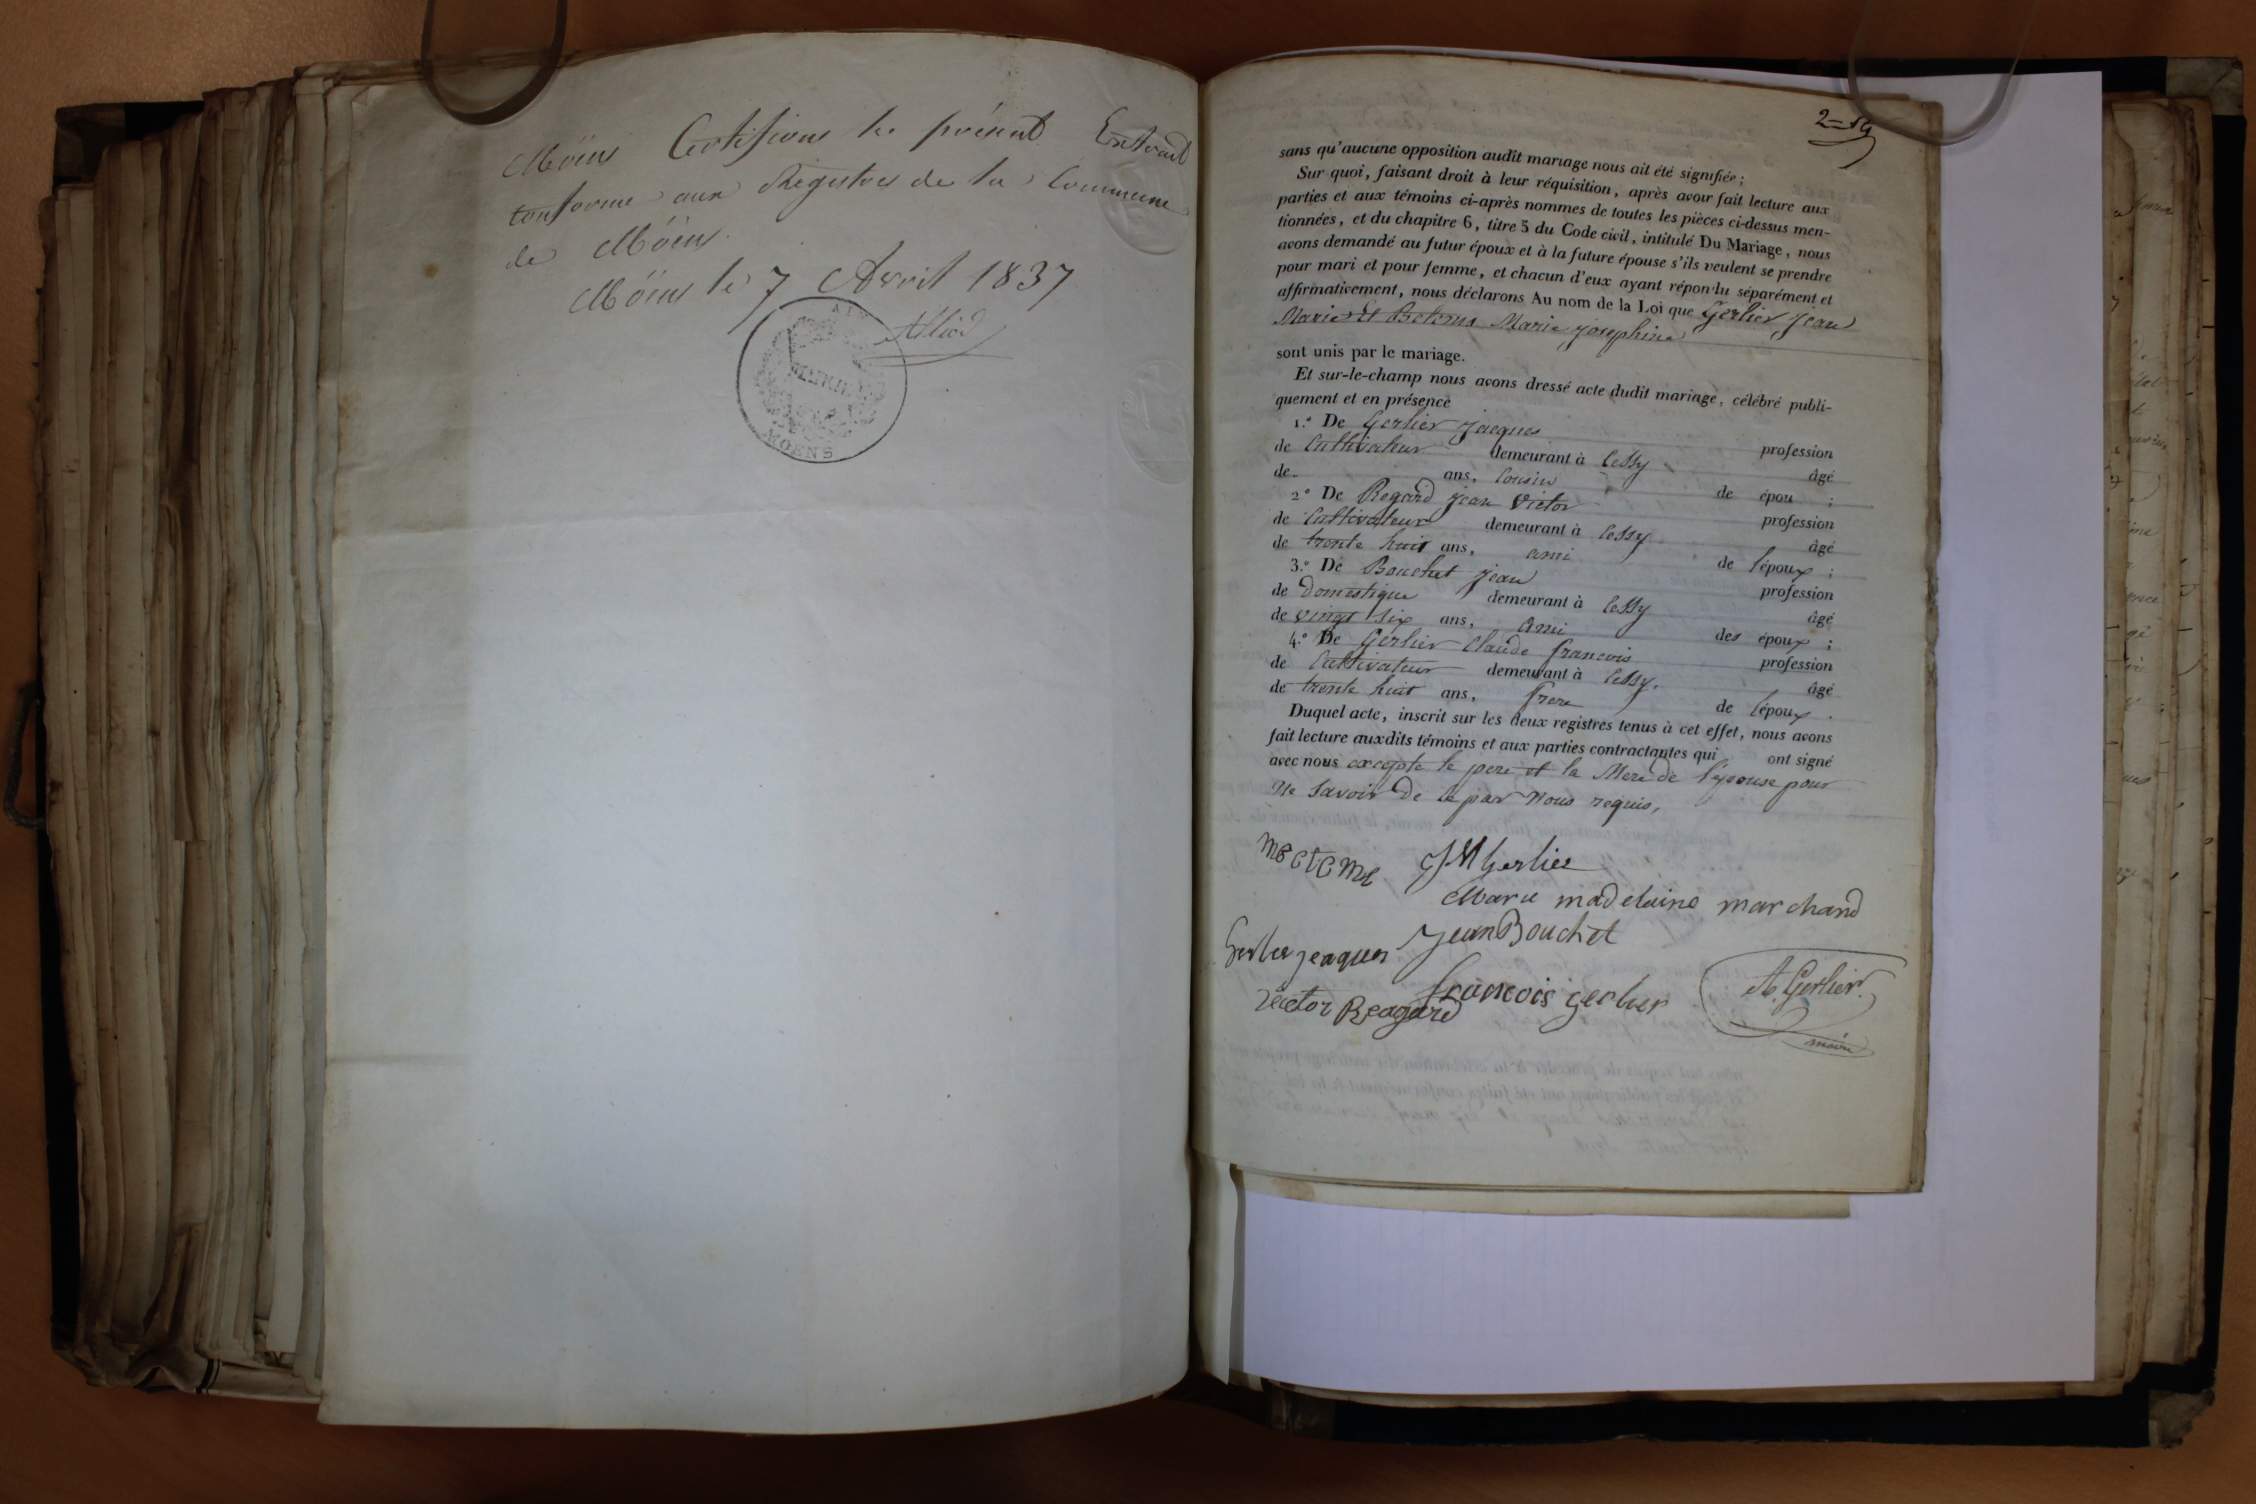 Möens Certifions le présent Extrait
conforme aux Registres de la Commune
de Möens.
Möens le 7 Avril 1837
AIN
MAIRIE
MOENS
sans qu'aucune opposition audit mariage nous ait été signifiée;
Sur quoi, faisant droit à leur réquisition, après avoir fait lecture aux
parties et aux témoins ci-après nommes de toutes les pièces ci-dessus men-
tionnées, et du chapitre 6, titre 5 du Code civil, intitulé Du Mariage, nous
avons demandé au futur époux et à la future épouse s'ils veulent se prendre
pour mari et pour femme, et chacun d'eux ayant répondu séparément et
affirmativement, nous déclarons Au nom de la Loi que Gerlier Jean
Marie Et Marie josephine
sont unis par le mariage.
Et sur-le-champ nous avons dressé acte dudit mariage, célébré publi-
quement et en présence
1.° De Gerlier jacques profession
de Cultivateur demeurant à Cessy âgé
de ans, Cousin de épou ;
2° De Regard jean victor profession
de Cultivateur demeurant à Cessy âgé
de trente huit ans, ami de l'époux ;
3.° De Bouchet jean profession
de domestique demeurant à Cessy âgé
de vingt six ans, ami des époux ;
4.° De Gerlier Claude francois profession
de Cultivateur demeurant à Cessy. âgé
de trente huit ans, frere de l'époux.
Duquel acte, inscrit sur les deux registres tenus à cet effet, nous avons
fait lecture auxdits témoins et aux parties contractantes qui ont signé
avec nous excepté le pere et la Mere de l'épouse pour
Ne Savoir De ce par Nous requis,
JM Gerlier
Marie madelaine marchand
Jean Bouchet
Gerlier jeaques
francois gerlier
A. Gerlier.
victor Reagard
maire